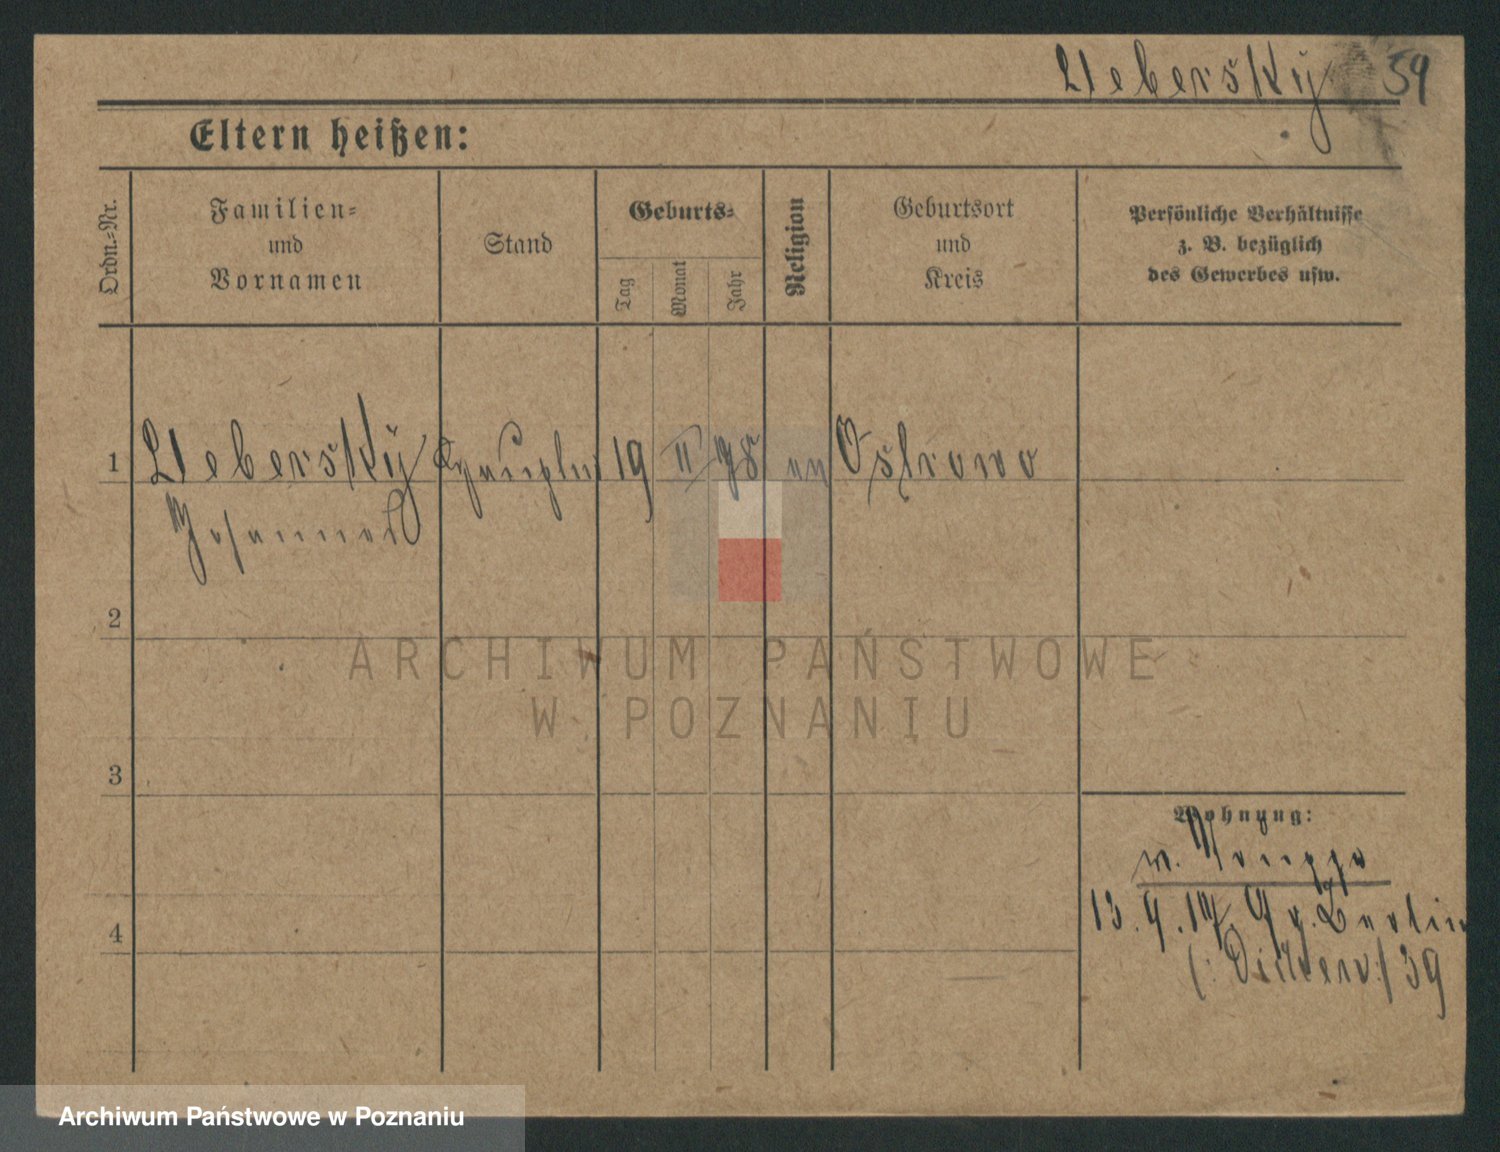 Uebersky 39
Eltern heißen:
Ordn.=Nr.
Familien=
und
Vornamen
Stand
Geburts=
Tag
Monat
Jahr
Religion
Geburtsort
und
Kreis
Persönliche Verhältnisse
z. B. bezüglich
des Gewerbes usw.
1 Uebersky 19 II 98 Ostrowo
2
3
4
Wohnung:
13.9.19 Berlin
39
ARCHIWUM PAŃSTWOWE
W POZNANIU
Archiwum Państwowe w Poznaniu